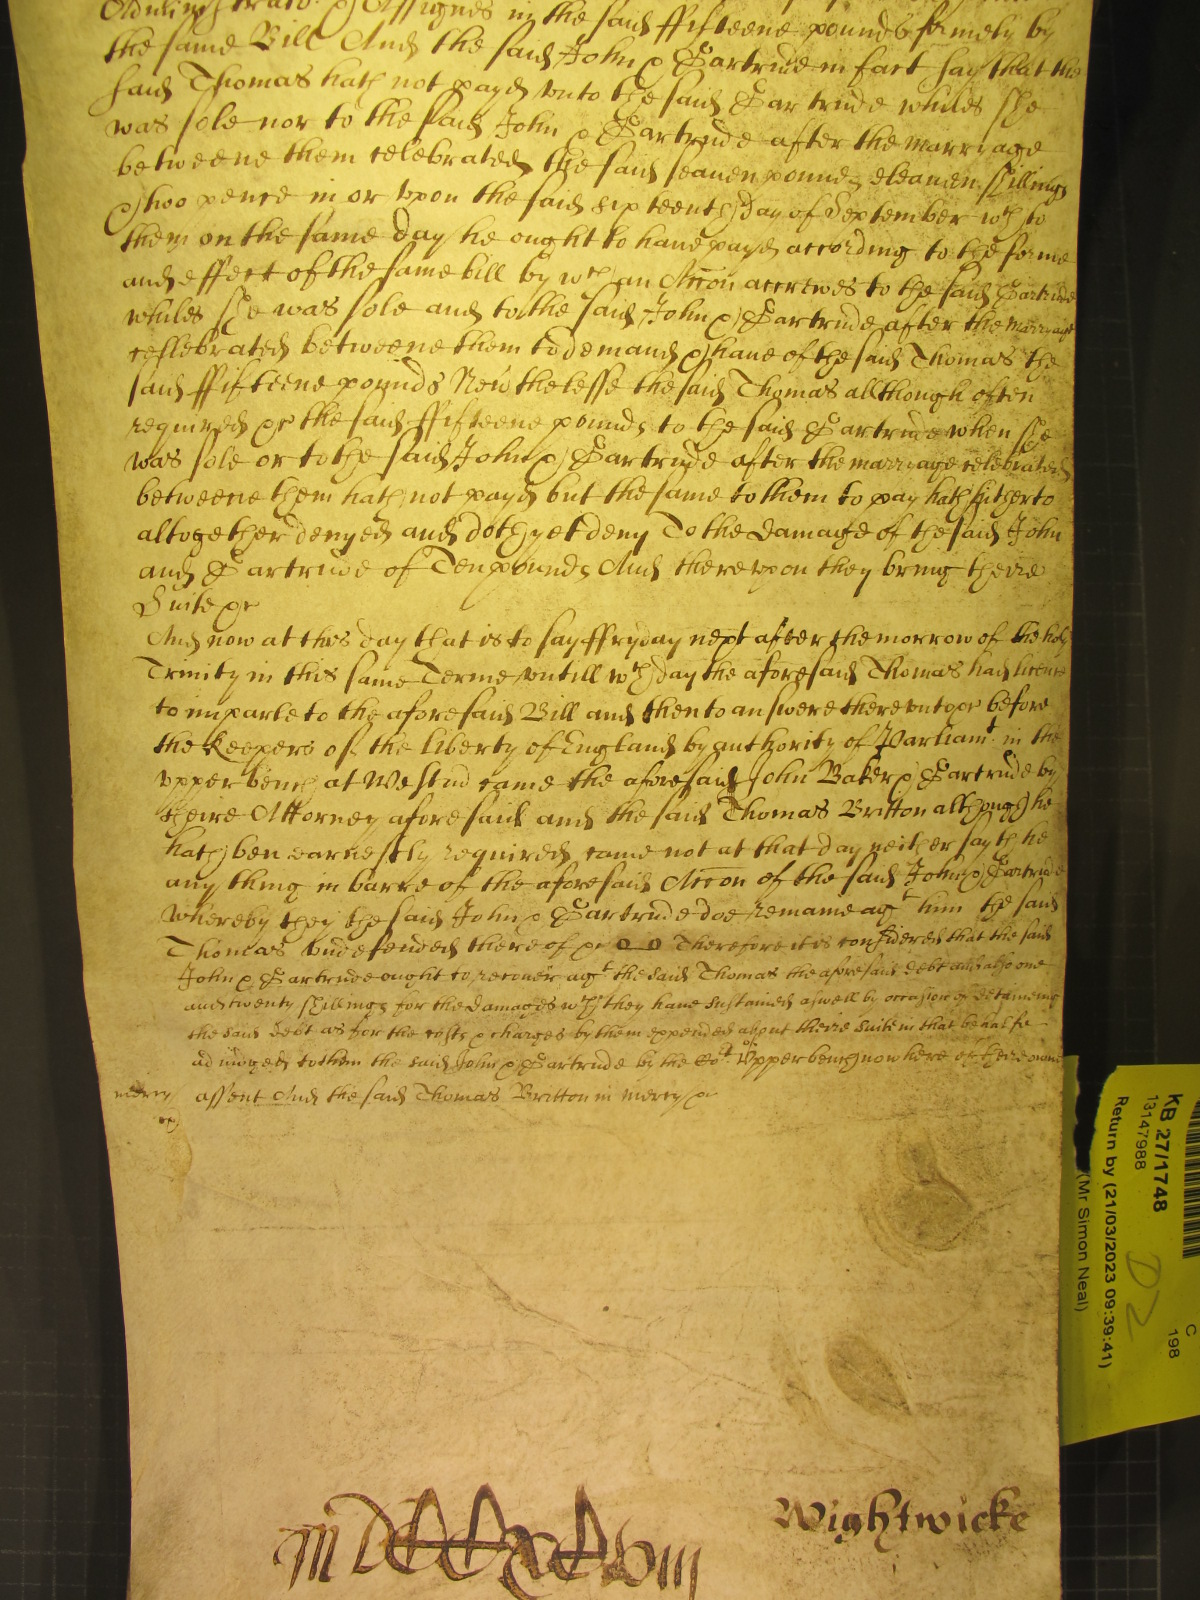 Administrato. & Assignes in the said ffifteene pounds firmely by
the same Bill And the said John & Gartrude in fact say that the
said Thomas hath not payd vnto the said Gartrude whiles she
was sole nor to the said John & Gartrude after the marriage
betweene them celebrated the said seauen pounds eleauen shillings
& two pence in or vpon the said sixteenth day of September wch to
them on the same day he ought to haue payd according to the forme
and effect of the same bill by wch an Accon accrewes to the said Gartrude
whiles she was sole and to the said John & Gartrude after the marriage
cellebrated betweene them to demand & haue of the said Thomas the
said ffifteene pounds Neu'thelesse the said Thomas allthough often
required &c the said ffifteene pounds to the said Gartrude when she
was sole or to the said John & Gartrude after the marriage celebrated
betweene them hath not payd but the same to them to pay hath hitherto
altogether denyed and doth yet deny To the damage of the said John
and Gartrude of Ten pounds And therevpon they bring theire
Suite &c
And now at this day that is to say ffryday next after the morrow of the holy
Trinity in this same Terme vntill wch day the aforesaid Thomas had licence
to imparle to the aforesaid Bill and then to answere therevnto &c before
the Keepers of the liberty of England by authority of Parliamt. in the
vpper bench at Westm'd came the aforesaid John Baker & Gartrude by
theire Attorney aforesaid and the said Thomas Britton although he
hath ben earnestly required came not at that day neither sayth he
any thing in barre of the aforesaid Accon of the said John & Gartrude
Whereby they the said John & Gartrude doe remaine agt him the said
Thomas vndefended thereof &c Therefore it is considered that the said
John & Gartrude ought to recouer agt the said Thomas the aforesaid debt and also one
and twenty shillings for the damages wch they haue sustained aswell by occasion of detaineing
the said debt as for the costs & charges by them expended about theire suite in that behalfe
adiudged to them the said John & Gartrude by the Cot. of Vpper bench now here of theire owne
mercy assent And the said Thomas Britton in mercy &c
Wightwicke
KB 27/1748
13147988
Return by (21/03/2023 09:39:41)
(Mr Simon Neal)
D2
C
198